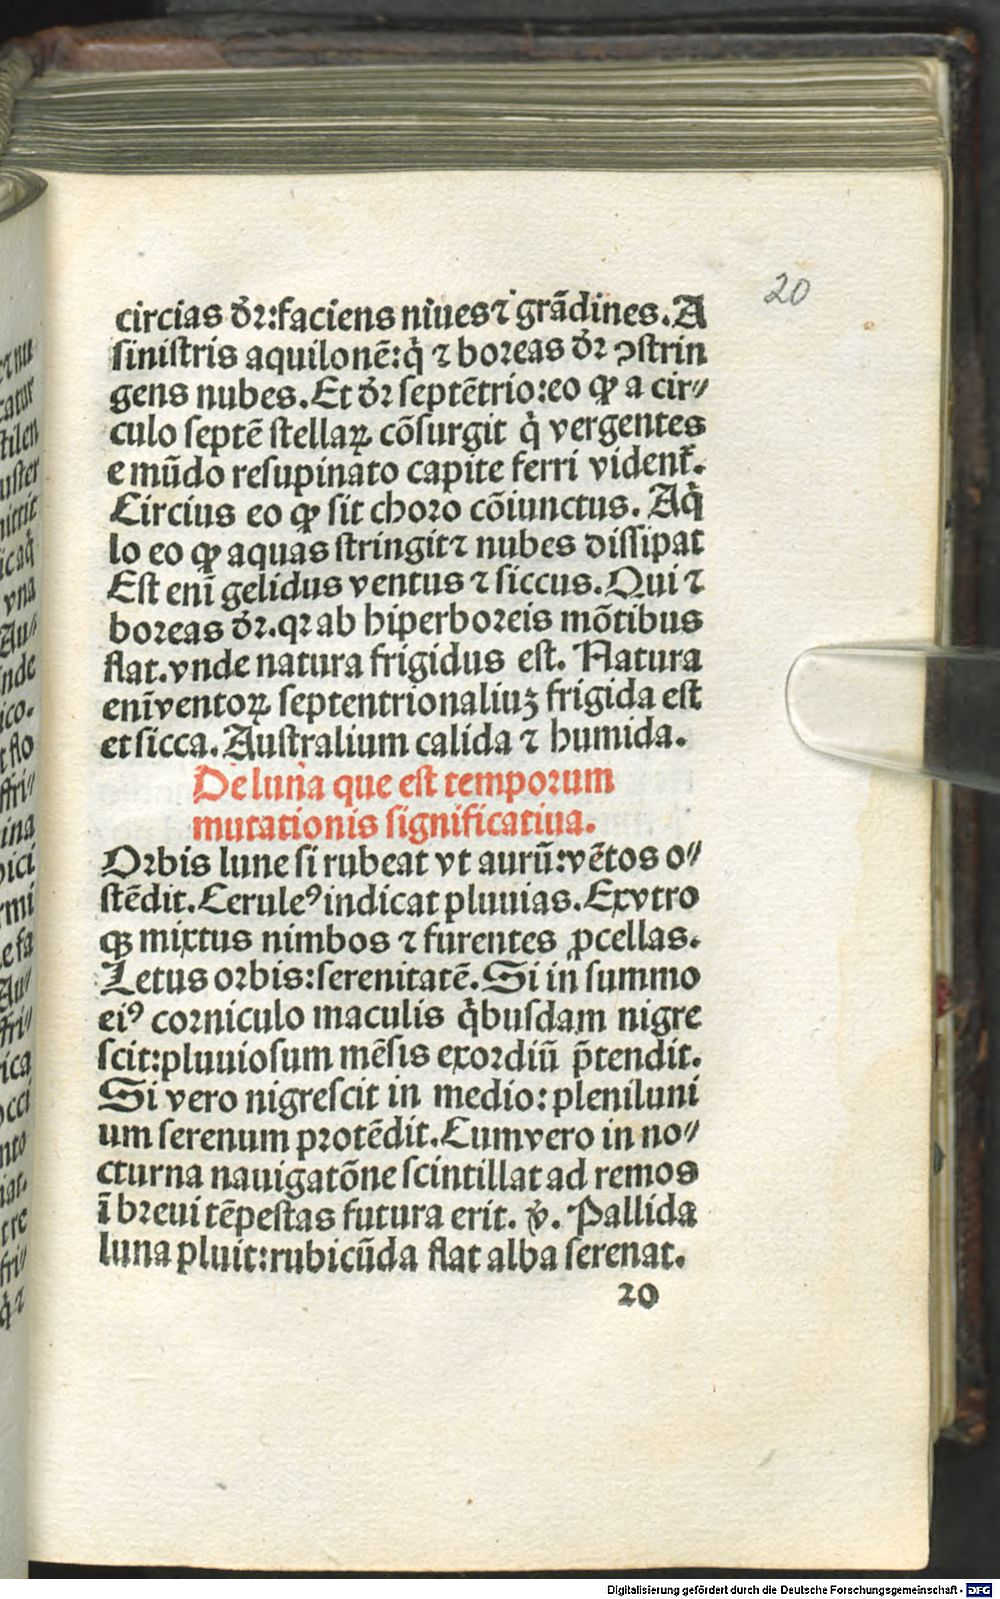 20
circias dr̃:faciens niues ⁊ grãdines. A
sinistris aquilonē:q̇ ⁊ boreas dr̃ ꝯstrin
gens nubes. Et dr̃ septētrio:eo ꝙ a cir⸗
culo septē stellaꝝ cõsurgit q̇ vergentes
e mũdo resupinato capite ferri videnť.
Circius eo ꝙ sit choro cõiunctus. Aq̇
lo eo ꝙ aquas stringit ⁊ nubes dissipat
Est enī gelidus ventus ⁊ siccus. Qui ⁊
boreas dr̃.qꝛ ab hiperboreis mõtibus
flat.vnde natura frigidus est. Natura
enī ventoꝝ septentrionaliuꝫ frigida est
et sicca. Australium calida ⁊ humida.
De luna que est temporum
mutationis significatiua.
Orbis lune si rubeat vt aurũ:vētos o⸗
stēdit. Ceruleꝰ indicat pluuias. Ex vtro
qꝫ mixtus nimbos ⁊ furentes ꝓcellas.
Letus orbis:serenitatē. Si in summo
eiꝰ corniculo maculis q̇busdam nigre
scit:pluuiosum mēsis exordiũ p̄tendit.
Si vero nigrescit in medio: pleniluni
um serenum protēdit. Cum vero in no⸗
cturna nauigatõne scintillat ad remos
ī breui tēpestas futura erit. v̇. Pallida
luna pluit:rubicũda flat alba serenat.
20
Digitalisierung gefördert durch die Deutsche Forschungsgemeinschaft - DFG